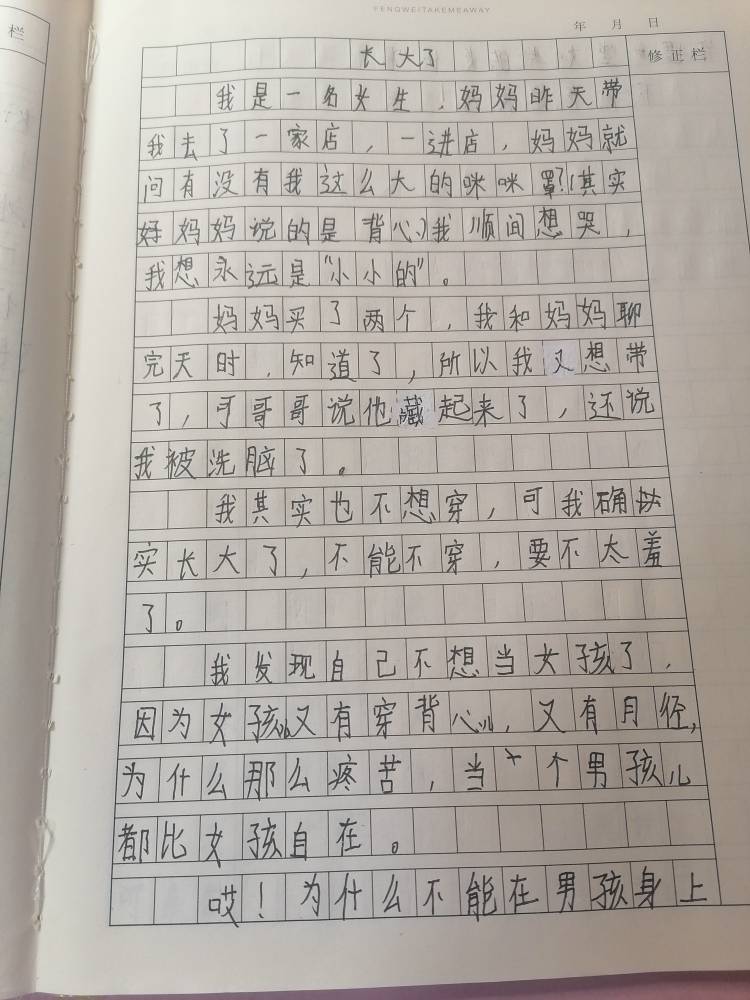 FENGWEITAKEMEAWAY
年 月 日
栏
修正栏
长大了
我是一名女生，妈妈昨天带
我去了一家店，一进店，妈妈就
问有没有我这么大的咪咪罩？（其实
好妈妈说的是背心）我顺间想哭，
我想永远是“小小的”。
妈妈买了两个，我和妈妈聊
完天时，知道了，所以我又想带
了，可哥哥说他藏起来了，还说
我被洗脑了。
我其实也不想穿，可我确
实长大了，不能不穿，要不太羞
了。
我发现自己不想当女孩了，
因为女孩又有穿背心儿，又有月经，
为什么那么疼苦，当个男孩儿
都比女孩自在。
哎！为什么不能在男孩身上